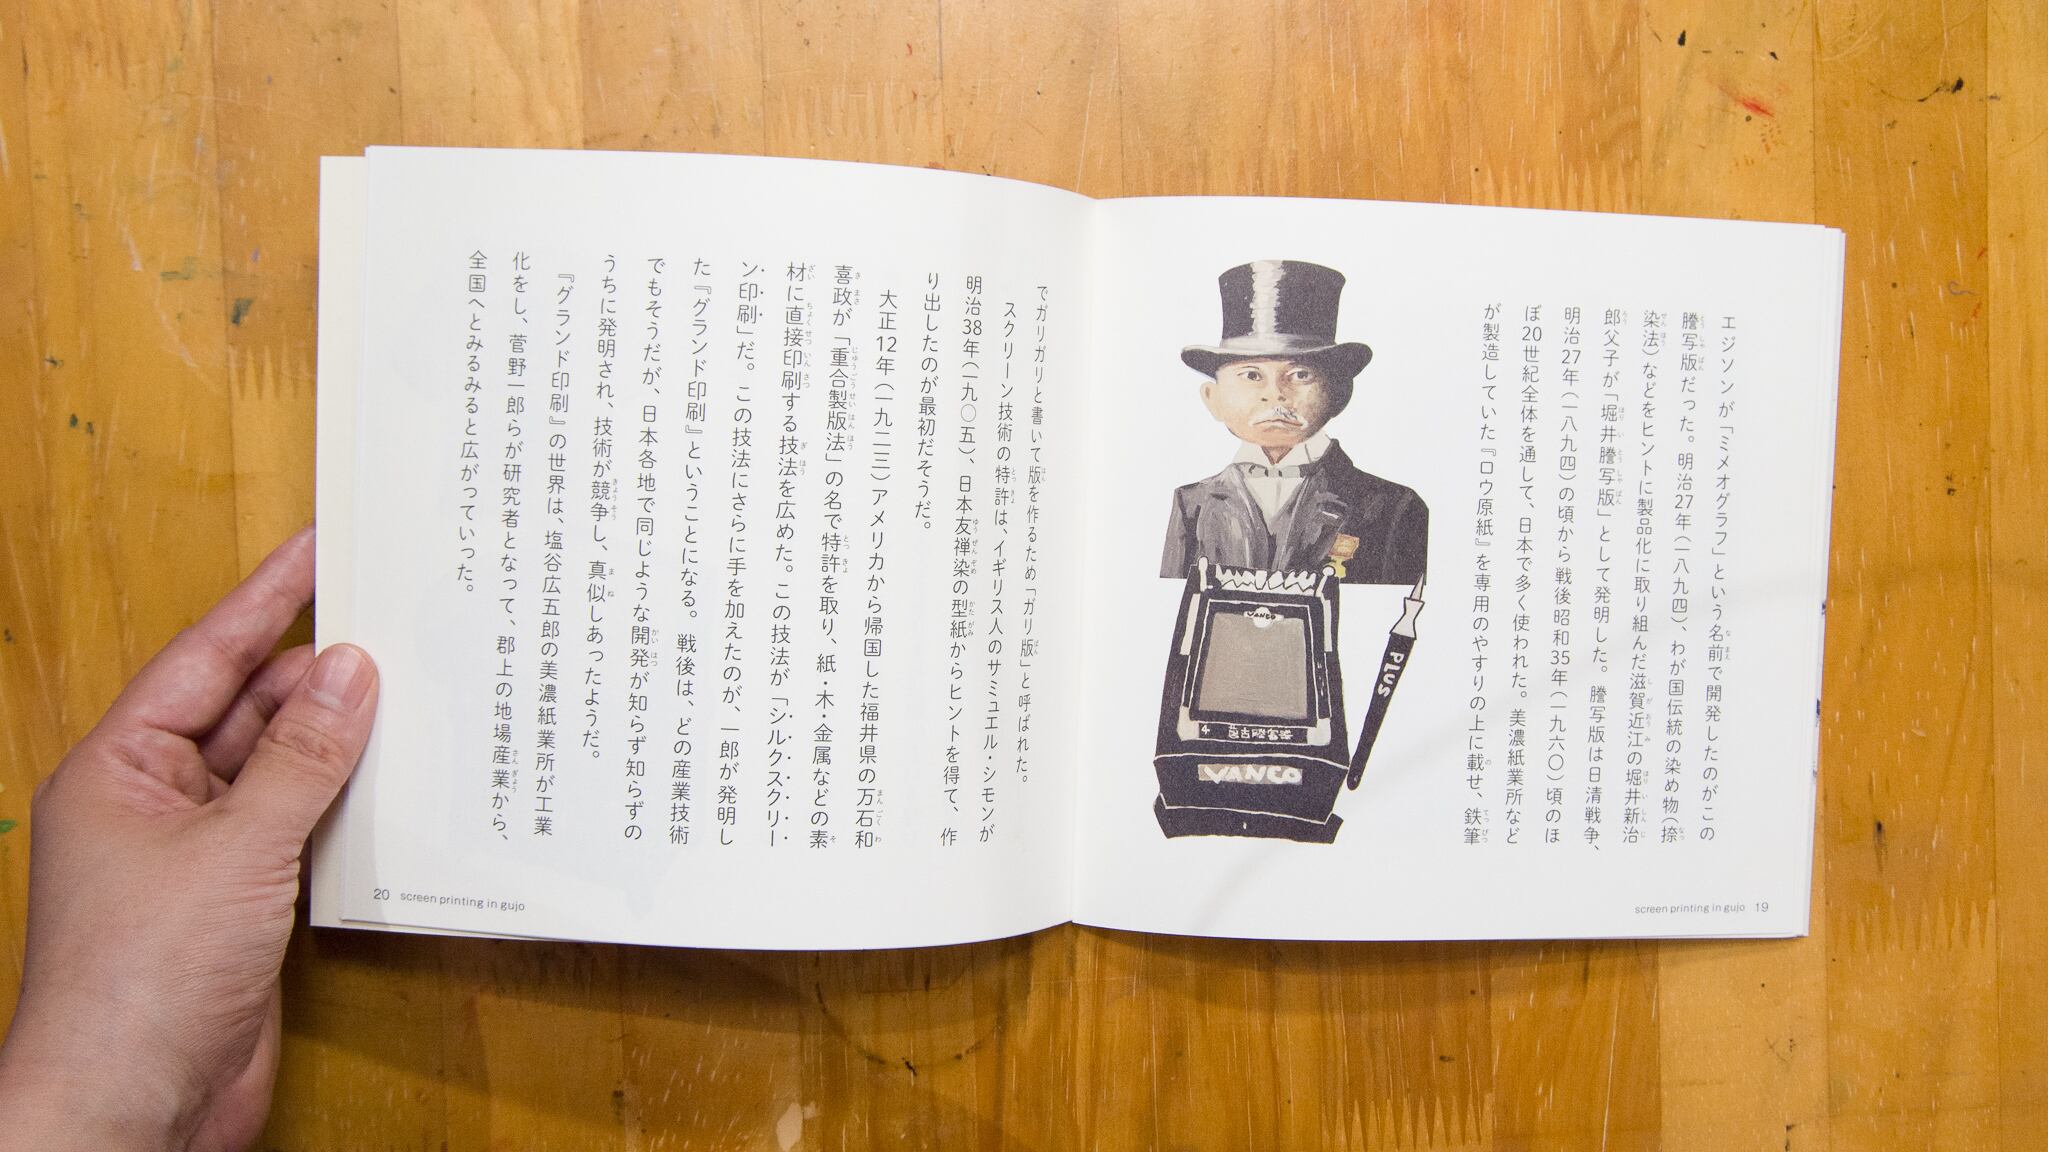 エジソンが「ミメオグラフ」という名前で開発したのがこの
謄写版だった。明治27年(一八九四)、わが国伝統の染め物(捺
染法)などをヒントに製品化に取り組んだ滋賀近江の堀井新治
郎父子が「堀井謄写版」として発明した。謄写版は日清戦争、
明治27年(一八九四)の頃から戦後昭和35年(一九六〇)頃のほ
ぼ20世紀全体を通して、日本で多く使われた。美濃紙業所など
が製造していた『ロウ原紙』を専用のやすりの上に載せ、鉄筆
PLUS
VANCO
4
VANCO
screen printing in gujo 19
でガリガリと書いて版を作るため「ガリ版」と呼ばれた。
スクリーン技術の特許は、イギリス人のサミュエル・シモンが
明治38年(一九〇五)、日本友禅染の型紙からヒントを得て、作
り出したのが最初だそうだ。
大正12年(一九二三)アメリカから帰国した福井県の万石和
喜政が「重合製版法」の名で特許を取り、紙・木・金属などの素
材に直接印刷する技法を広めた。この技法が「シルクスクリー
ン印刷」だ。この技法にさらに手を加えたのが、一郎が発明し
た『グランド印刷』ということになる。戦後は、どの産業技術
でもそうだが、日本各地で同じような開発が知らず知らずの
うちに発明され、技術が競争し、真似しあったようだ。
『グランド印刷』の世界は、塩谷広五郎の美濃紙業所が工業
化をし、菅野一郎らが研究者となって、郡上の地場産業から、
全国へとみるみると広がっていった。
20 screen printing in gujo